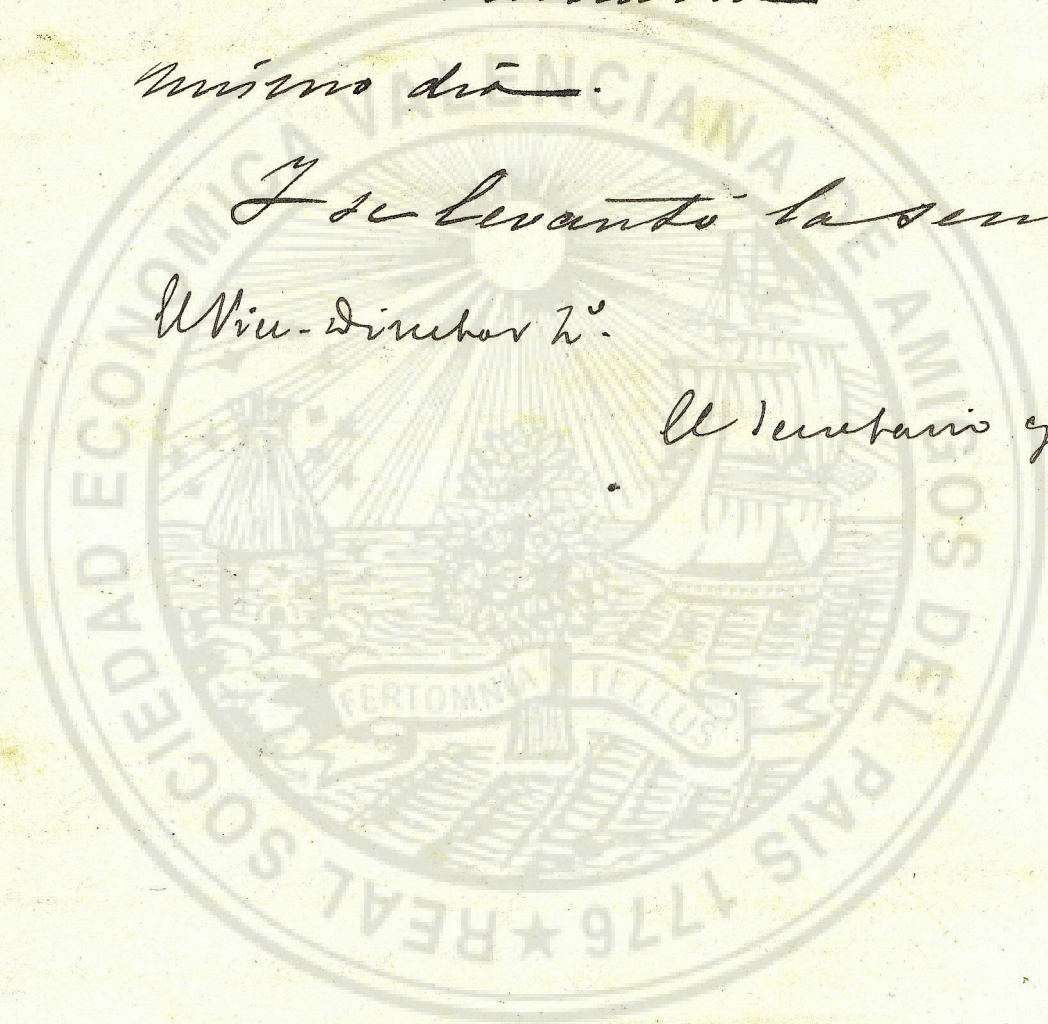 mismo dia.
Y se levantó la sesn
El Vice-Director 2º.
El Secretario g
REAL SOCIEDAD ECONOMICA VALENCIANA DE AMIGOS DEL PAIS 1776 ★
FERTOMNIA TELLUS